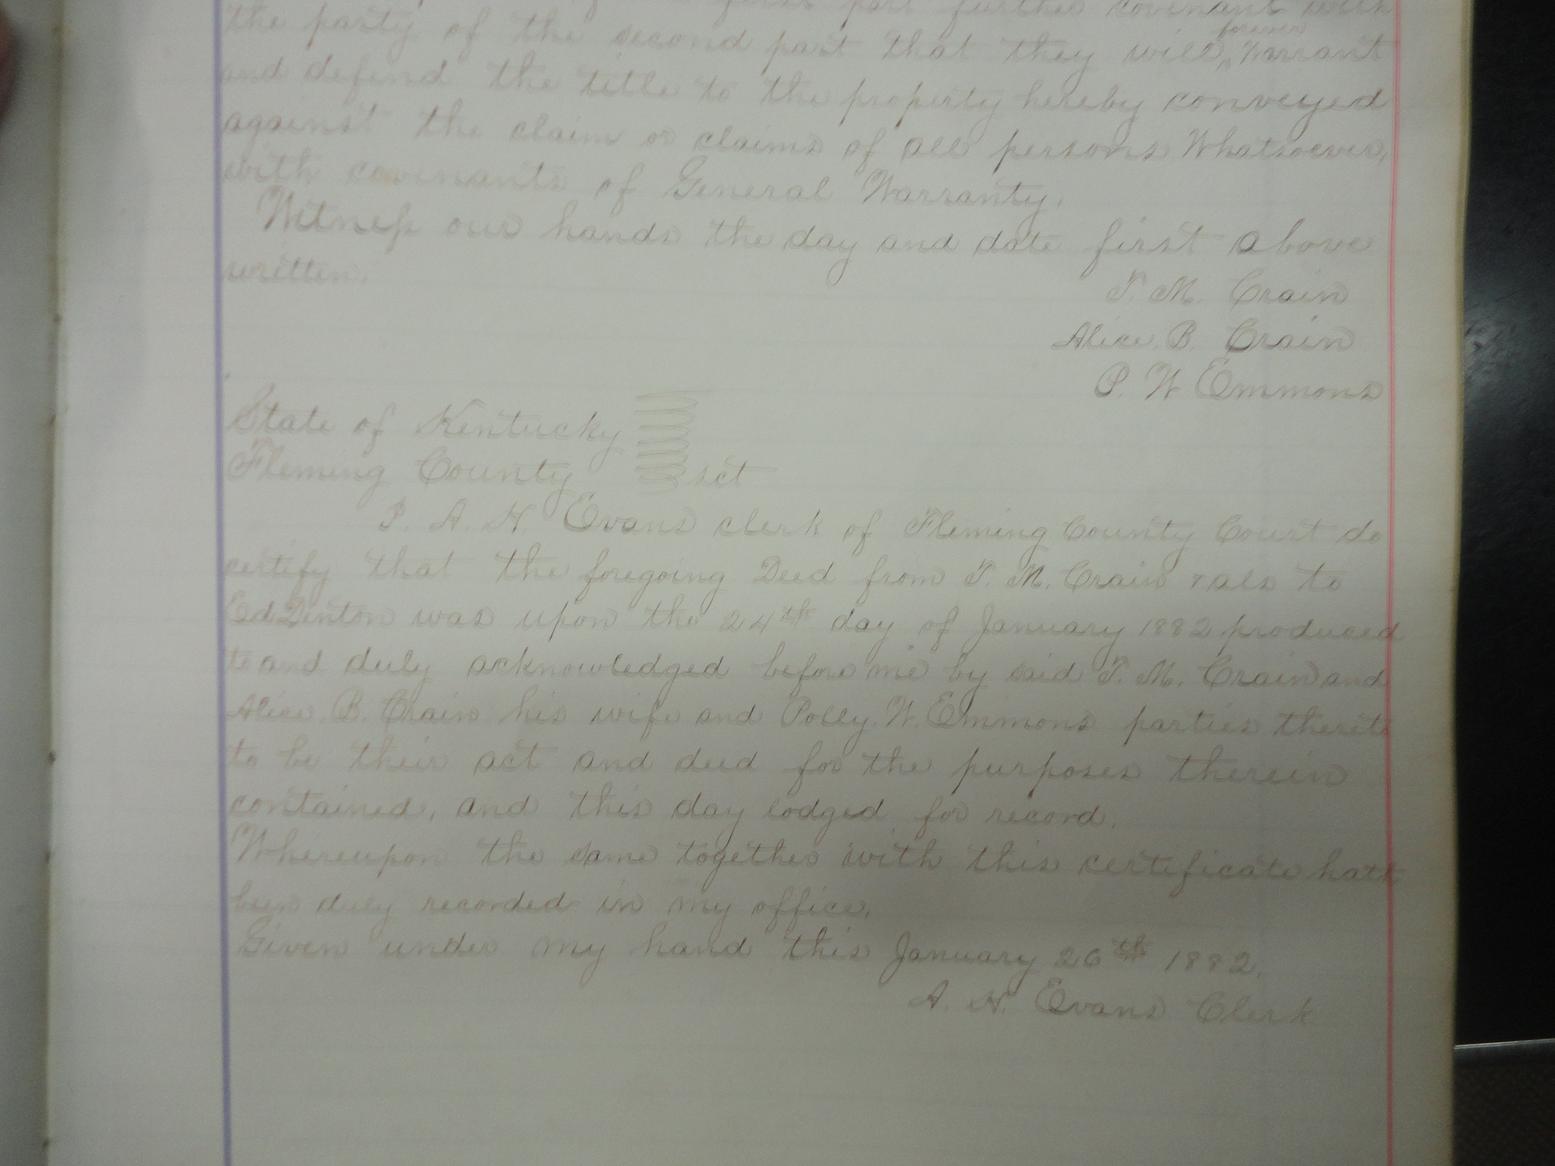 first part further covenant with
the party of the second part that they will forever Warrant
and defend the title to the property hereby conveyed
against the claim or claims of all persons Whatsoever,
with covenants of General Warranty.
Witness our hands the day and date first above
written.
T. M. Crain
Alice. B. Crain
P. W Emmons
State of Kentucky
Fleming County sct
I. A. H. Evans clerk of Fleming County Court do
certify that the foregoing Deed from T. M. Crain & als to
Ed Denton was upon the 24th day of January 1882 produced
to and duly acknowledged before me by said T. M. Crain and
Alice. B. Crain his wife and Polly. W. Emmons parties thereto
to be their act and deed for the purposes therein
contained, and this day lodged for record.
Whereupon the same together with this certificate hath
been duly recorded in my office.
Given under my hand this January 26th 1882.
A. H. Evans Clerk